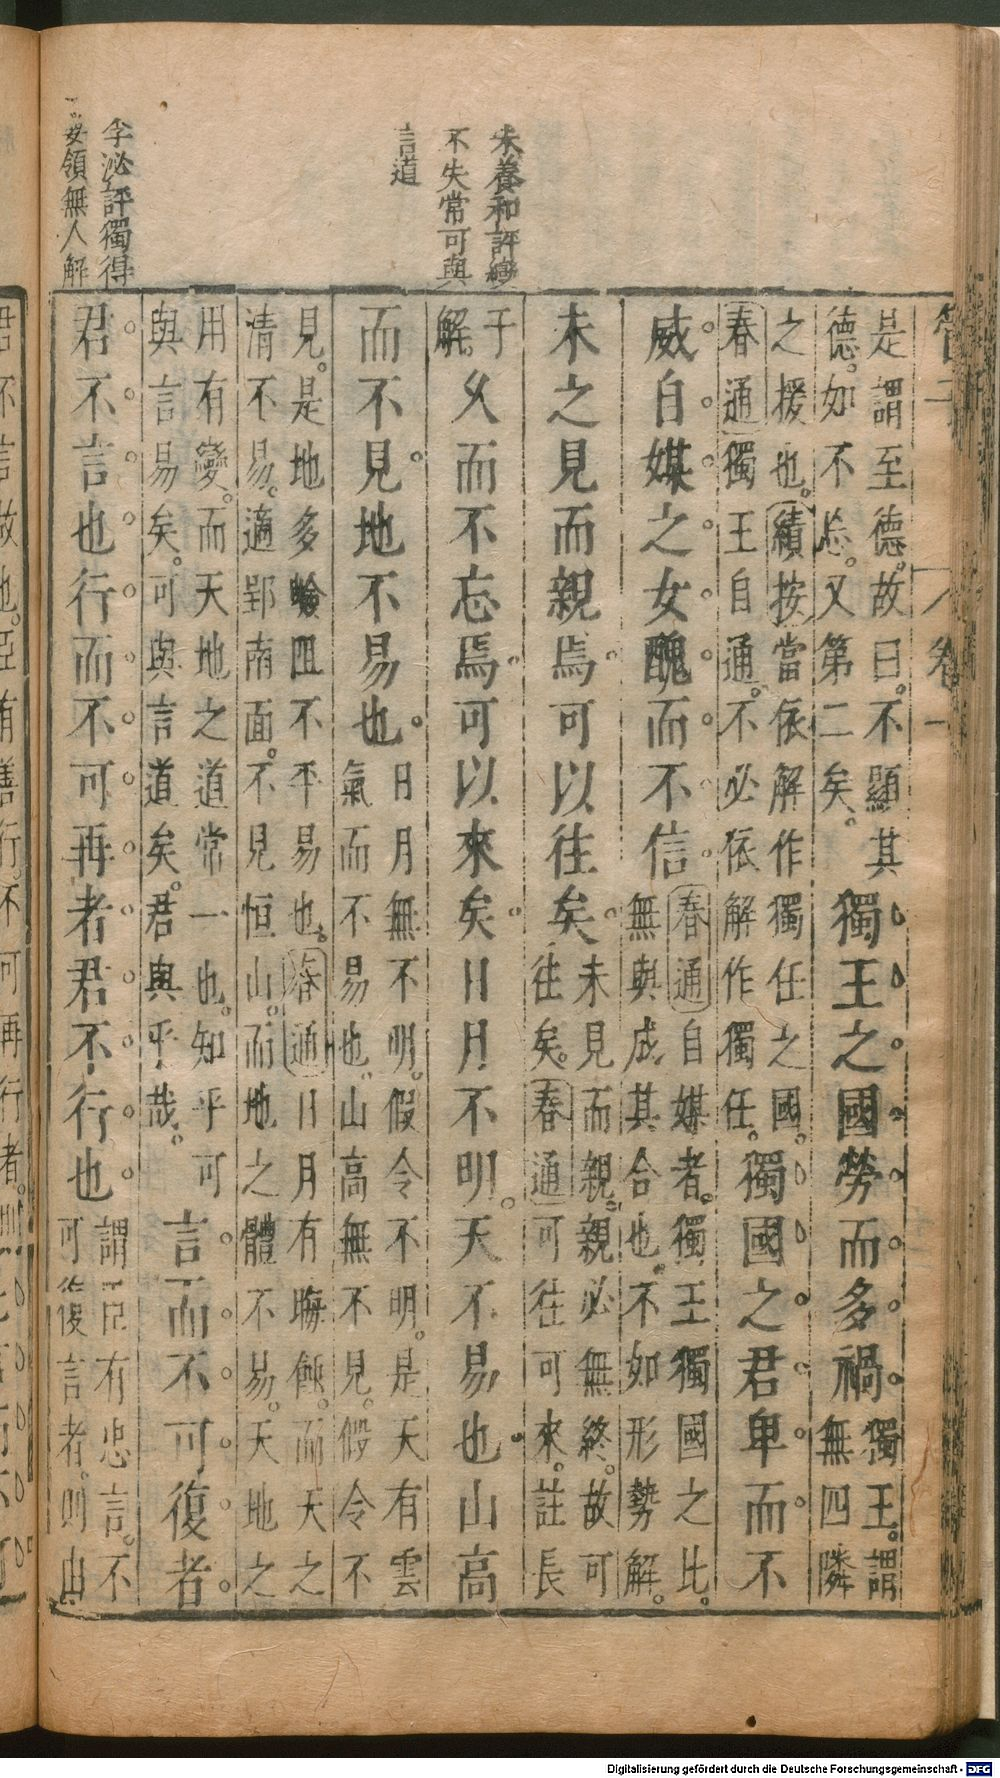 朱養和評變
不失常可與
言道
李泌評獨得
要領無人解
管子
卷一
是謂至德。故曰。不顯其
德。如不忘。又第二矣。
獨王之國勞而多禍
獨王。謂
無四隣
之援也。績按當依解作獨任之國。
春通獨王自通。不必依解作獨任。
獨國之君卑而不
威自媒之女醜而不信
春通自媒者。獨王獨國之比。
無與成其合也。不如形勢解。
未之見而親焉可以往矣
未見而親。親必無終。故可
往矣。春通可往可來。註長
于
解。
久而不忘焉可以來矣日月不明天不易也山高
而不見地不易也
日月無不明。假令不明。是天有雲
氣而不易也。山高無不見。假令不
見。是地多嶮阻不平易也。春通日月有晦蝕。而天之
清不易。適郢南面。不見恒山。而地之體不易。天地之
用有變。而天地之道常一也。知乎可
與言易矣。可與言道矣。君與乎哉。
言而不可復者
君不言也行而不可再者君不行也
謂臣有忠言。不
可復言者。則由
君不言故也。臣有善行。不可再行者。則
Digitalisierung gefördert durch die Deutsche Forschungsgemeinschaft - DFG